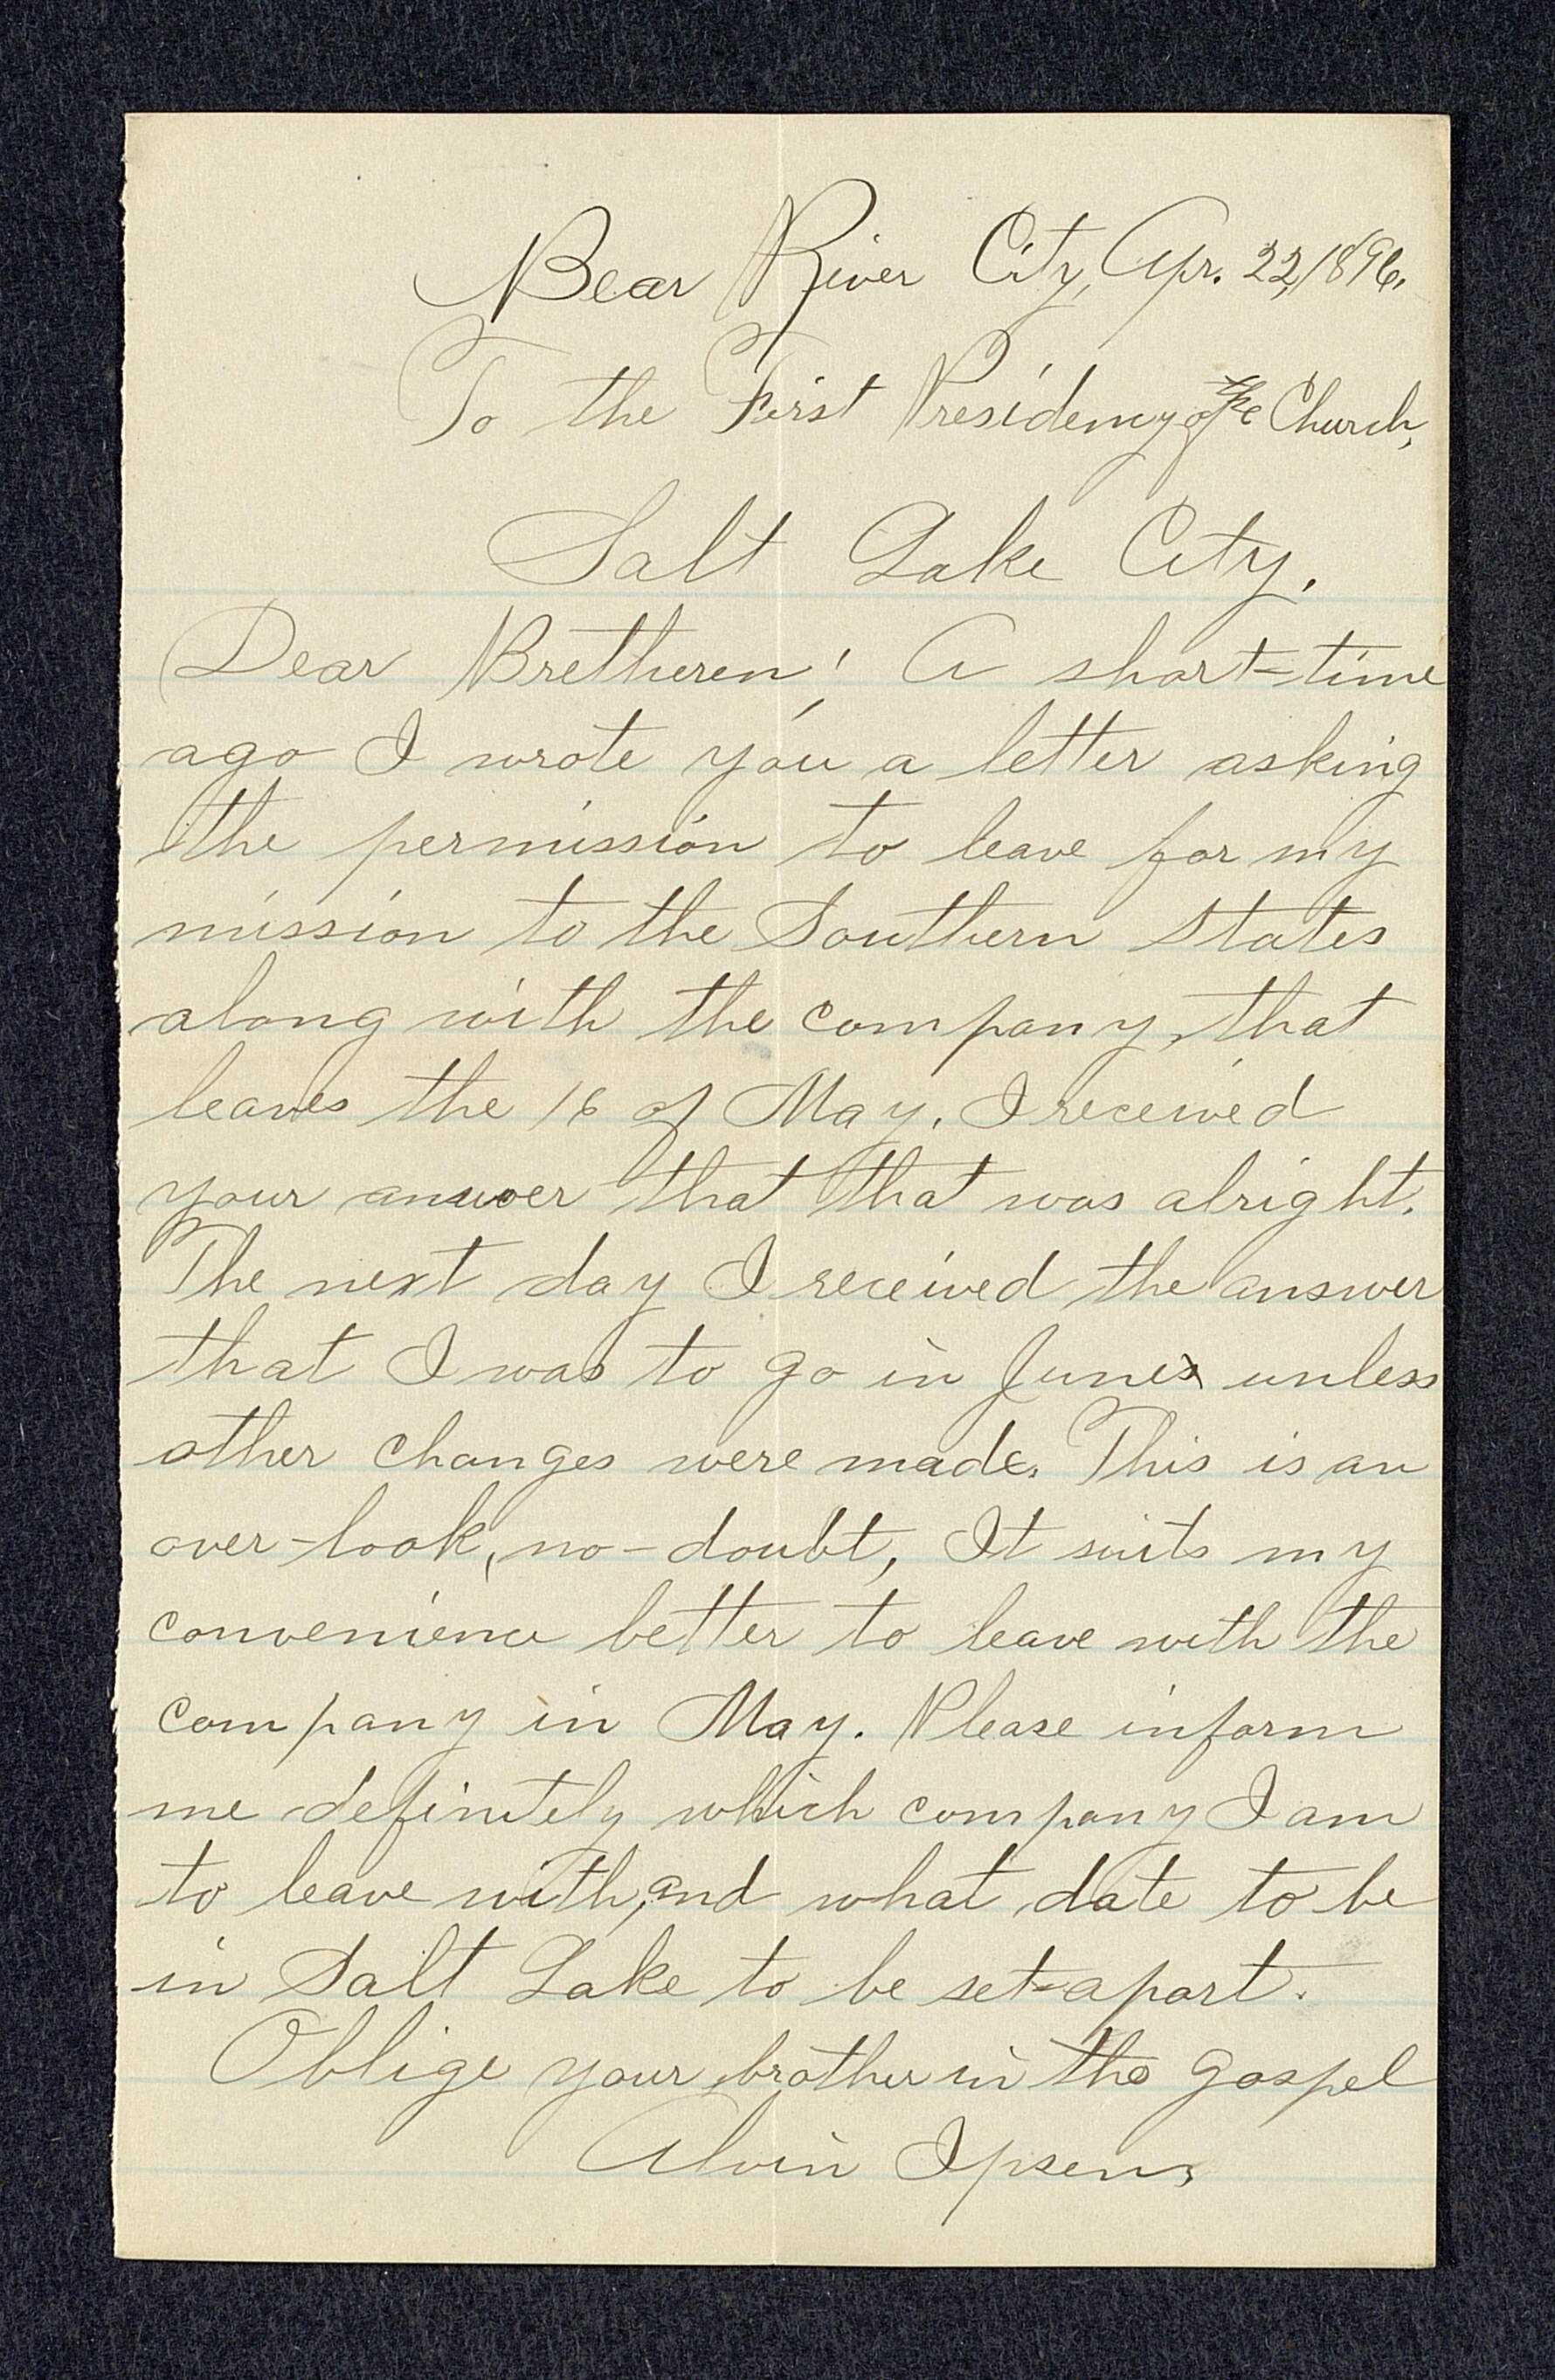 Bear River City, Apr. 22, 1896.
To the First Presidency of the Church,
Salt Lake City.
Dear Bretheren! A short-time
ago I wrote you a letter asking
the permission to leave for my
mission to the Southern States
along with the company, that
leaves the 16 of May. I received
your answer that that was alright.
The next day I received the answer
that I was to go in June unless
other changes were made. This is an
over-look, no-doubt, It suits my
convenience better to leave with the
company in May. Please inform
me definitely which company I am
to leave with, and what date to be
in Salt Lake to be set-apart.
Oblige your brother in the gospel
Alvin Ipsen,